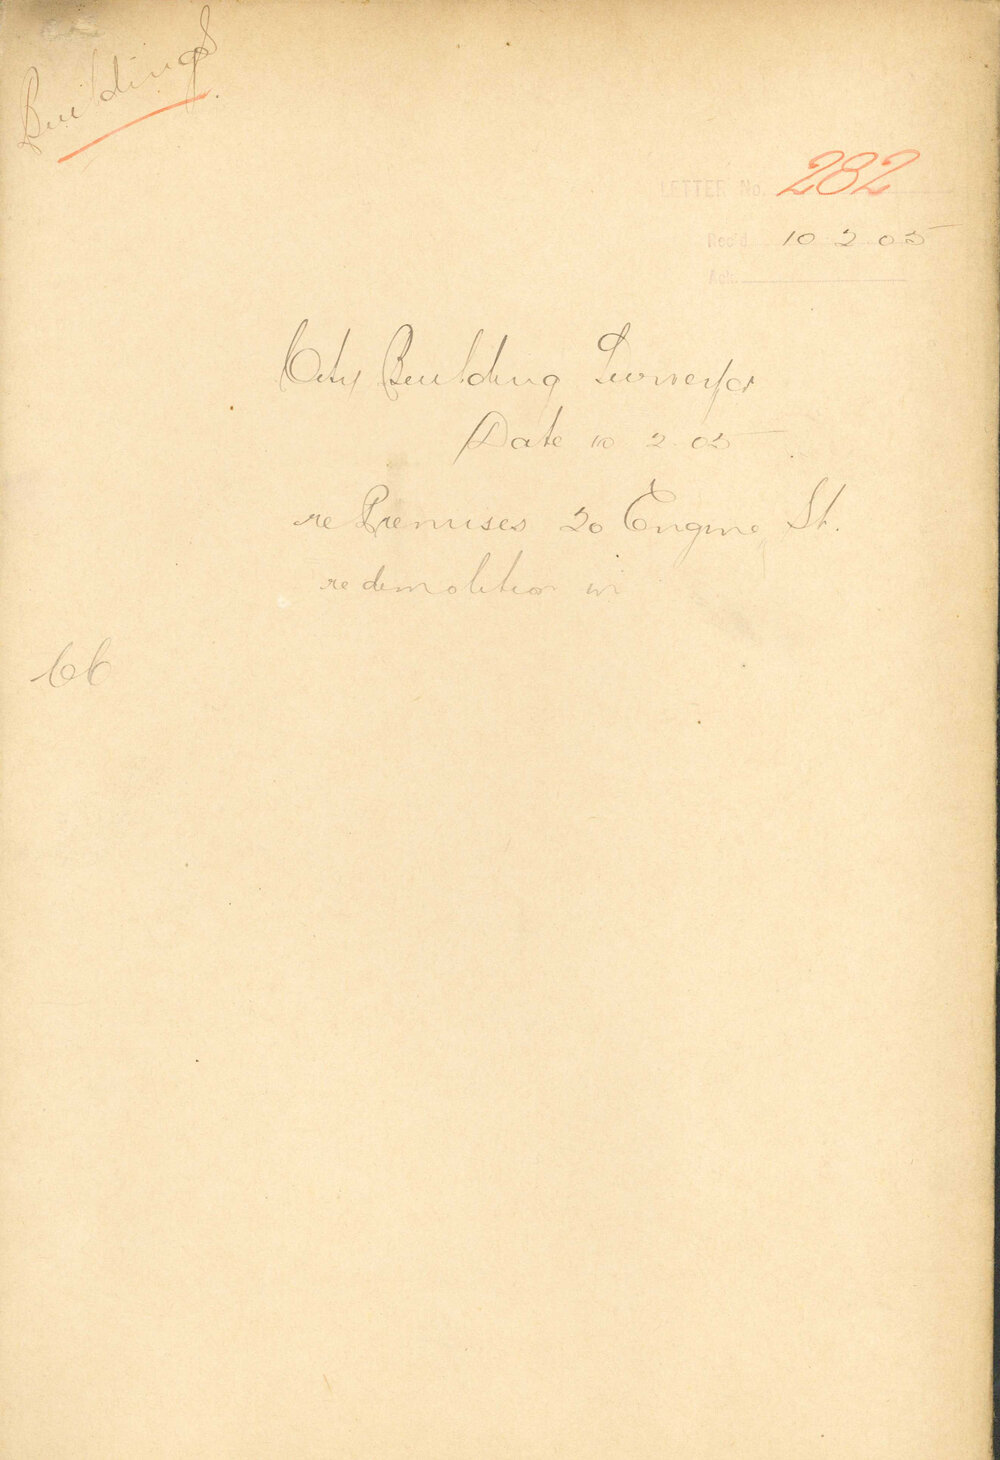 Buildings
LETTER No. 282
Rec'd 10 2 05
Ack.
City Building Surveyor
Date 10 2 05
re Premises 20 Engine St.
re demolition in